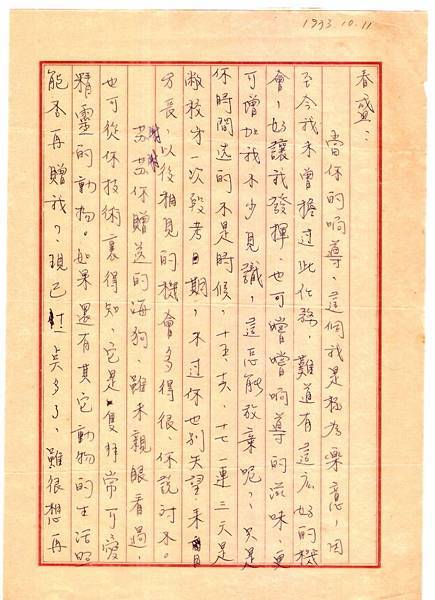 1993.10.11
春盛：
當你的响導，這個我是極為樂意，因
至今我未曾擔過此任務，難道有這麼好的機
會，好讓我發揮，也可嚐嚐响導的滋味，更
可增加我不少見識，這怎能放棄呢？只是
你時間选的不是時候，十五、十六、十七一連三天是
敝校第一次段考日期，不过你也别失望，來日
方長，以後相見的機會多得很，你說对不。
謝謝你贈送的海狗，雖未親眼看過，
也可從你技術裏得知，它是隻非常可愛
精靈的動物。如果還有其它動物的生活照
能否再贈我？現已 点多了，雖很想再